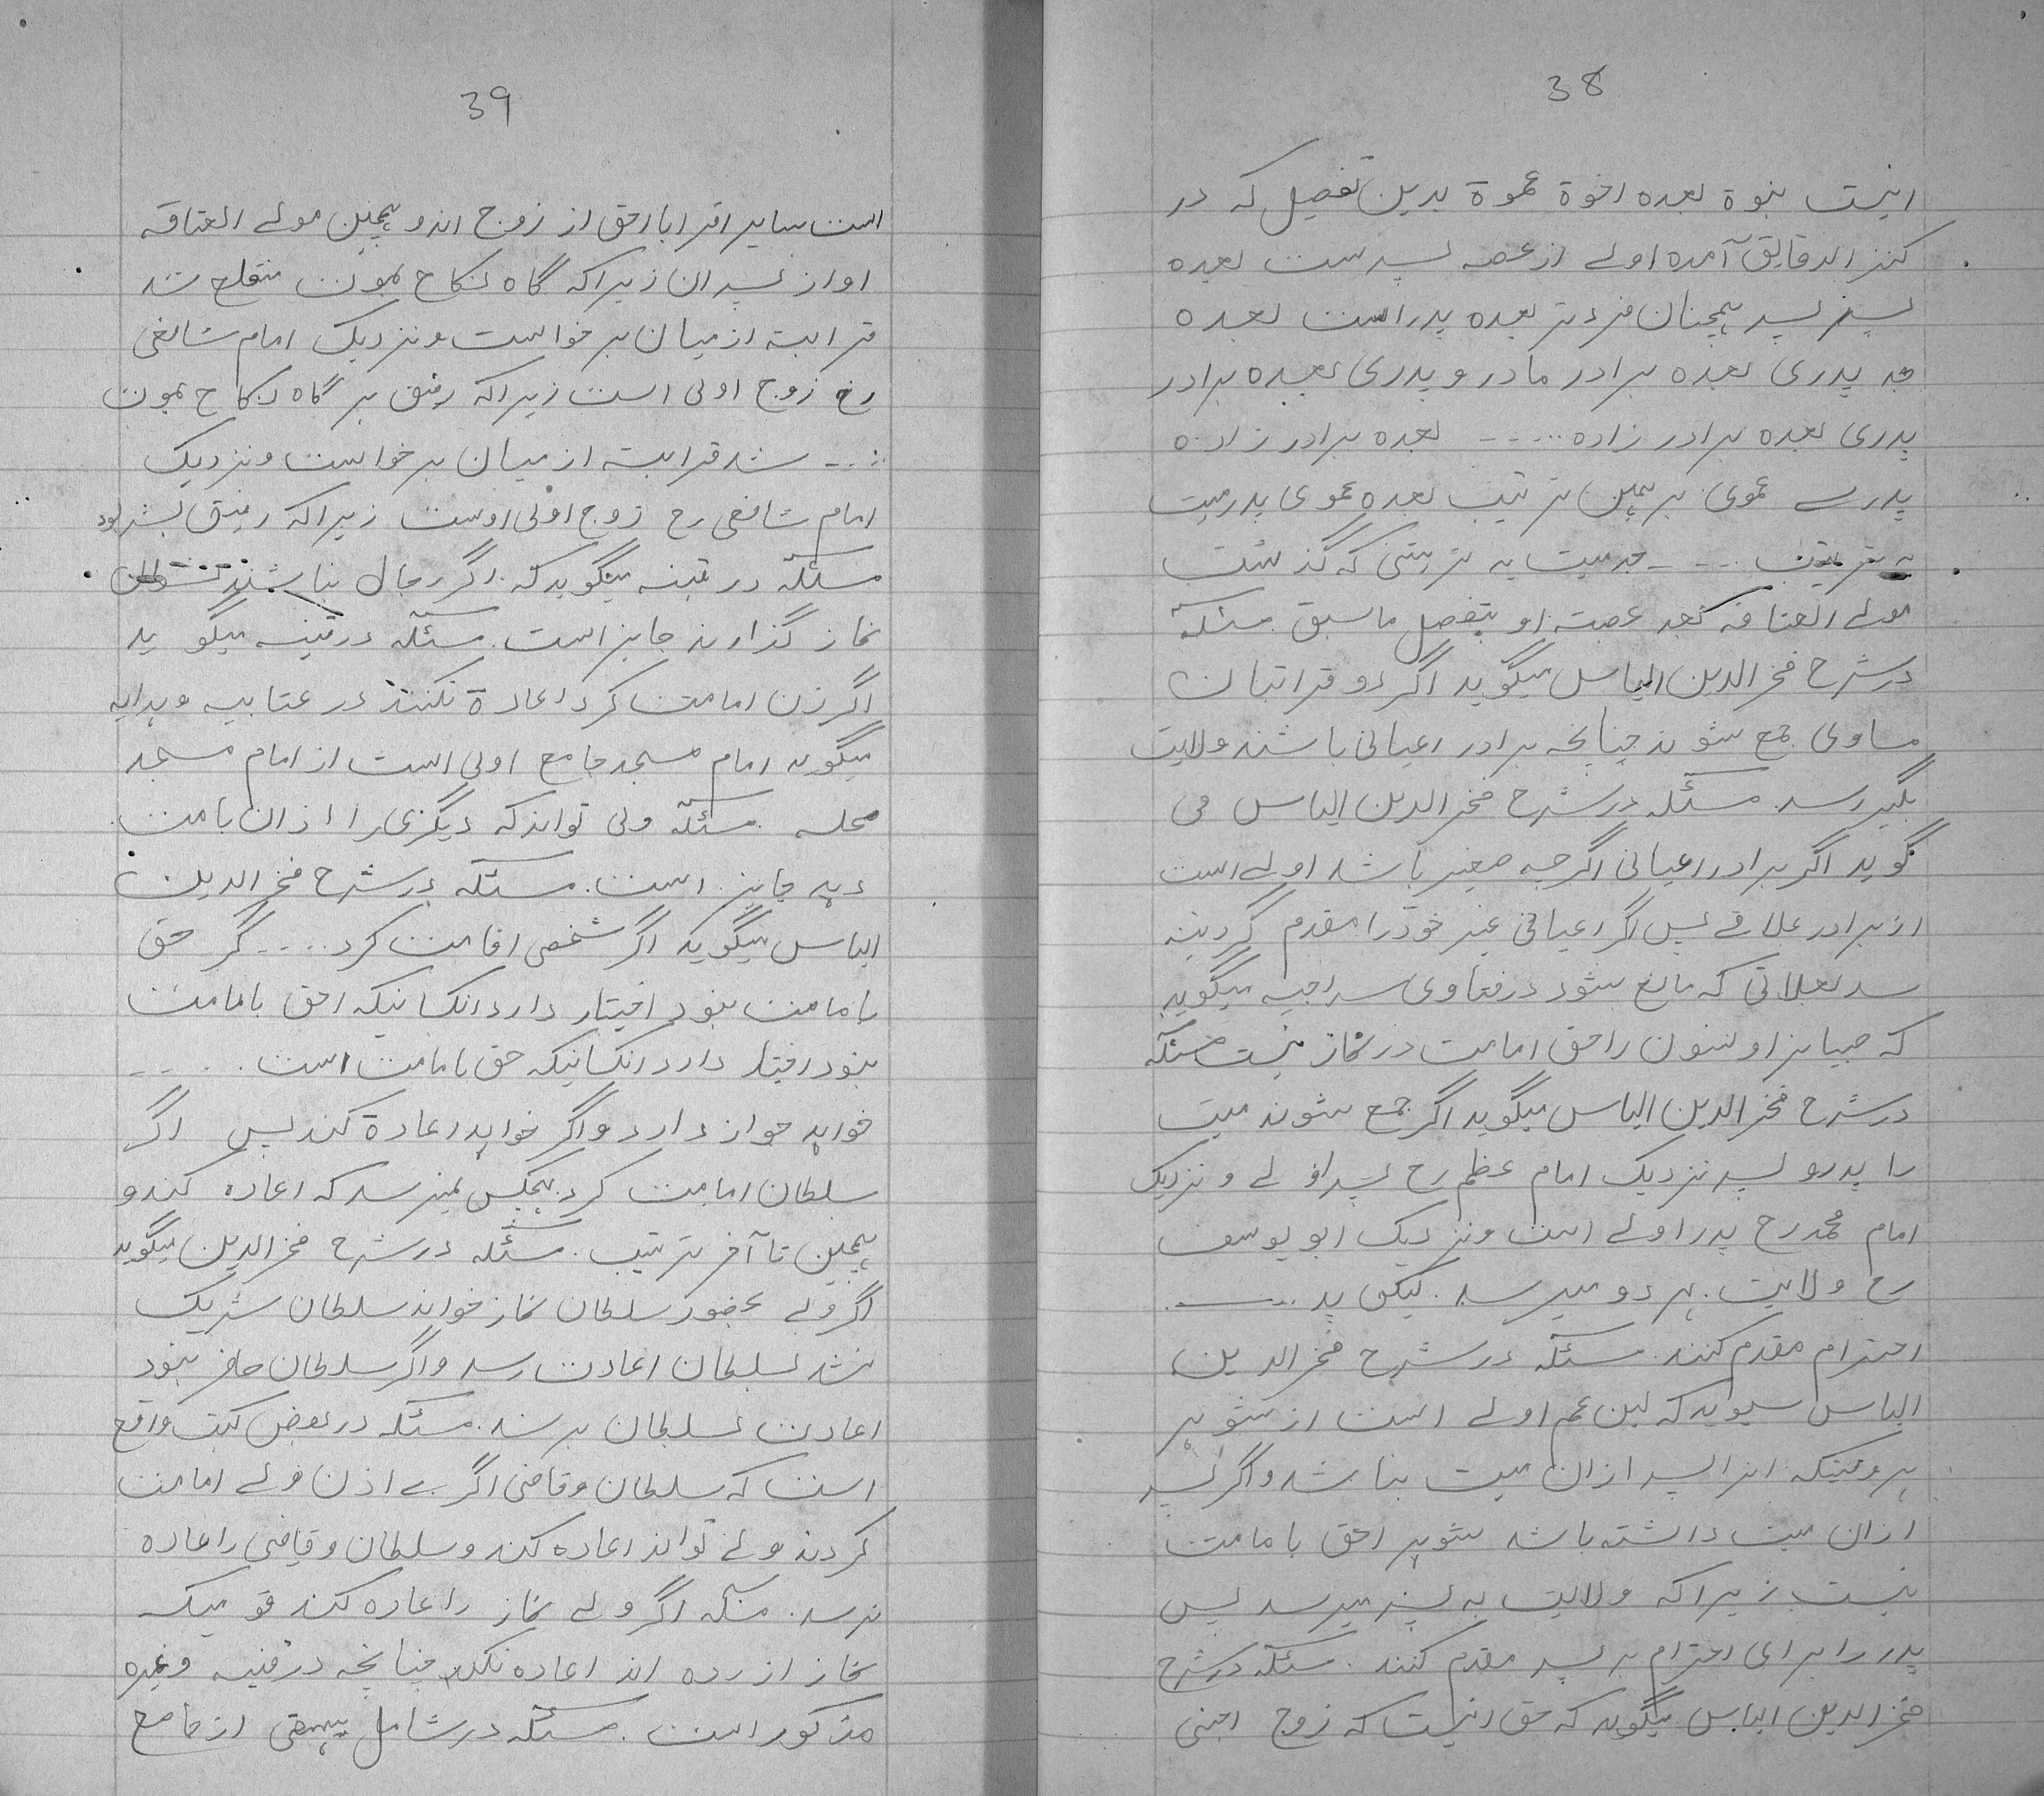 38
اینست بنوة بعده اخوة عموة بدین تفصیل که در
کنز الدقایق آمده اولے از عصبه پسرست بعده
پسر پسر همچنان فروتر بعده پدر است بعده
جد پدری بعده برادر مادر و پدری بعده برادر
پدری بعده برادر زاده ..... بعده برادر زاده
پدرے عموی بر همین ترتیب بعده عموی پدر میت
به ترتیب ..... جد میت به ترتیبی که گذشت
مولے العتاقه بعد عصبته او بتفصل ما سبق . مسئله
در شرح فخر الدین الیاس میگوید اگر دو قرابتان
مساوی جمع شوند چنانچه برادر اعیانی باشند ولایت
بگیر رسد . مسئله در شرح فخر الدین الیاس می
گوید اگر برادر اعیانی اگرچه صغیر باشد اولے است
از برادر علاقے پس اگر اعیانی غیر خود را مقدم کرد نیه
سد بعلاتی که مانع شود در فتاوی سراجیه میگوید
که صبیانرا و لنسون را حق امامت در نماز نیست مسئله
در شرح فخر الدین الیاس میگوید اگر جمع شوند میت
را پدر و پسر نزدیک امام عظم رح پسر اولے و نزدیک
امام محمد رح پدر اولے است و نزدیک ابو یوسف
رح ولایت . هر دو میرسد . لیکن پد .....
احترام مقدم کنند . مسئله در شرح فخر الدین
الیاس میگوید که ابن عم اولے است از شوهر
هر وقتیکه اورا پسر ازان میت نباشد و اگر پسر
ازان میت داشته باشد شوهر احق بامامت
نیست زیرا که ولایت به پسر میرسد پس
پدر را برای احترام بر پسر مقدم کنند . مسئله در شرح
فخر الدین الیاس میگوید که حق اینست که زوج اجنبی
39
است سایر اقربا احق از زوج اند و همچنین مولے العتاقه
او از پسران زیرا که گاه نکاح بموت منقلح شد
قرابته از میان برخواست و نزدیک امام شافعی
رح زوج اولی است زیرا که رفیق بر گاه نکاح بموت
..... شد قرابته از میان برخواست و نزدیک
امام شافعی رح زوج اولی اوست زیرا که رفیق بشر بود
مسئله در قینه میگوید که . اگر رجال نباشند
نماز گذارند جایز است . مسئله در قینه میگوید
اگر زن امامت کرد اعادة نکنند در عتابیه و هدایه
میگوید امام مسجد جامع اولی است از امام مسجد
محله . مسئله ولی تواند که دیگری را اذان بامت
دهد جایز است . مسئله در شرح فخر الدین
الیاس میگوید اگر شخصی اقامت کرد ..... گر حق
بامامت بنود اختیار دارد انکسانیکه احق بامامت
بنود اختیار دارد انکسانیکه حق بامامت است .....
خواهد جواز دارد و اگر خواهد اعادة کند پس اگر
سلطان امامت کرد هیچکس نمیرسد که اعاده کند و
همچنین تا آخر ترتیب . مسئله در شرح فخر الدین میگوید
اگر ولے بحضور سلطان نماز خواند سلطان شریک
نشد بسلطان اعادت رسد و اگر سلطان حاضر بنود
اعادت بسلطان نرسد . مسئله در بعض کتب واقع
است که سلطان و قاضی اگر بے اذن ولے امامت
کردند ولے تواند اعاده کند و سلطان و قاضی را اعاده
نرسد . مسئله اگر ولے نماز را اعاده کند قو میکه
نماز از رده اند اعاده نکند چنانچه در قنیه وغیره
مذکور است . مسئله در شامل بیهقی از جامع